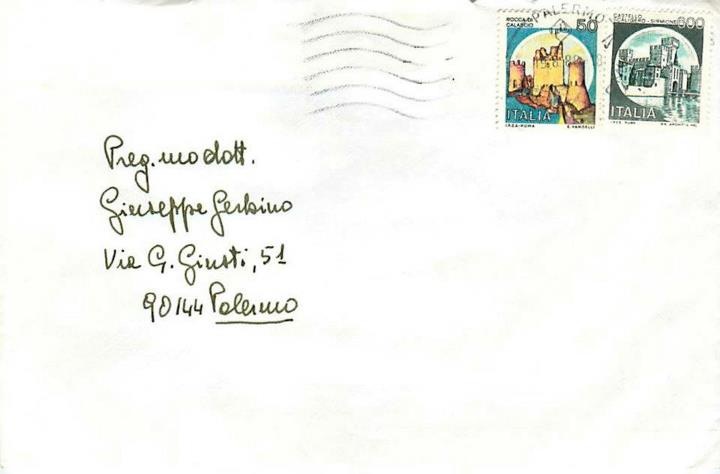 PALERMO
ROCCA DI
CALASCIO
50
CASTELLO
SCALIGERO - SIRMIONE
600
ITALIA
ITALIA
I.P.Z.S.-ROMA
E. VANGELLI
Preg.mo dott.
Giuseppe Gerbino
Via G. Giusti, 51
90144 Palermo